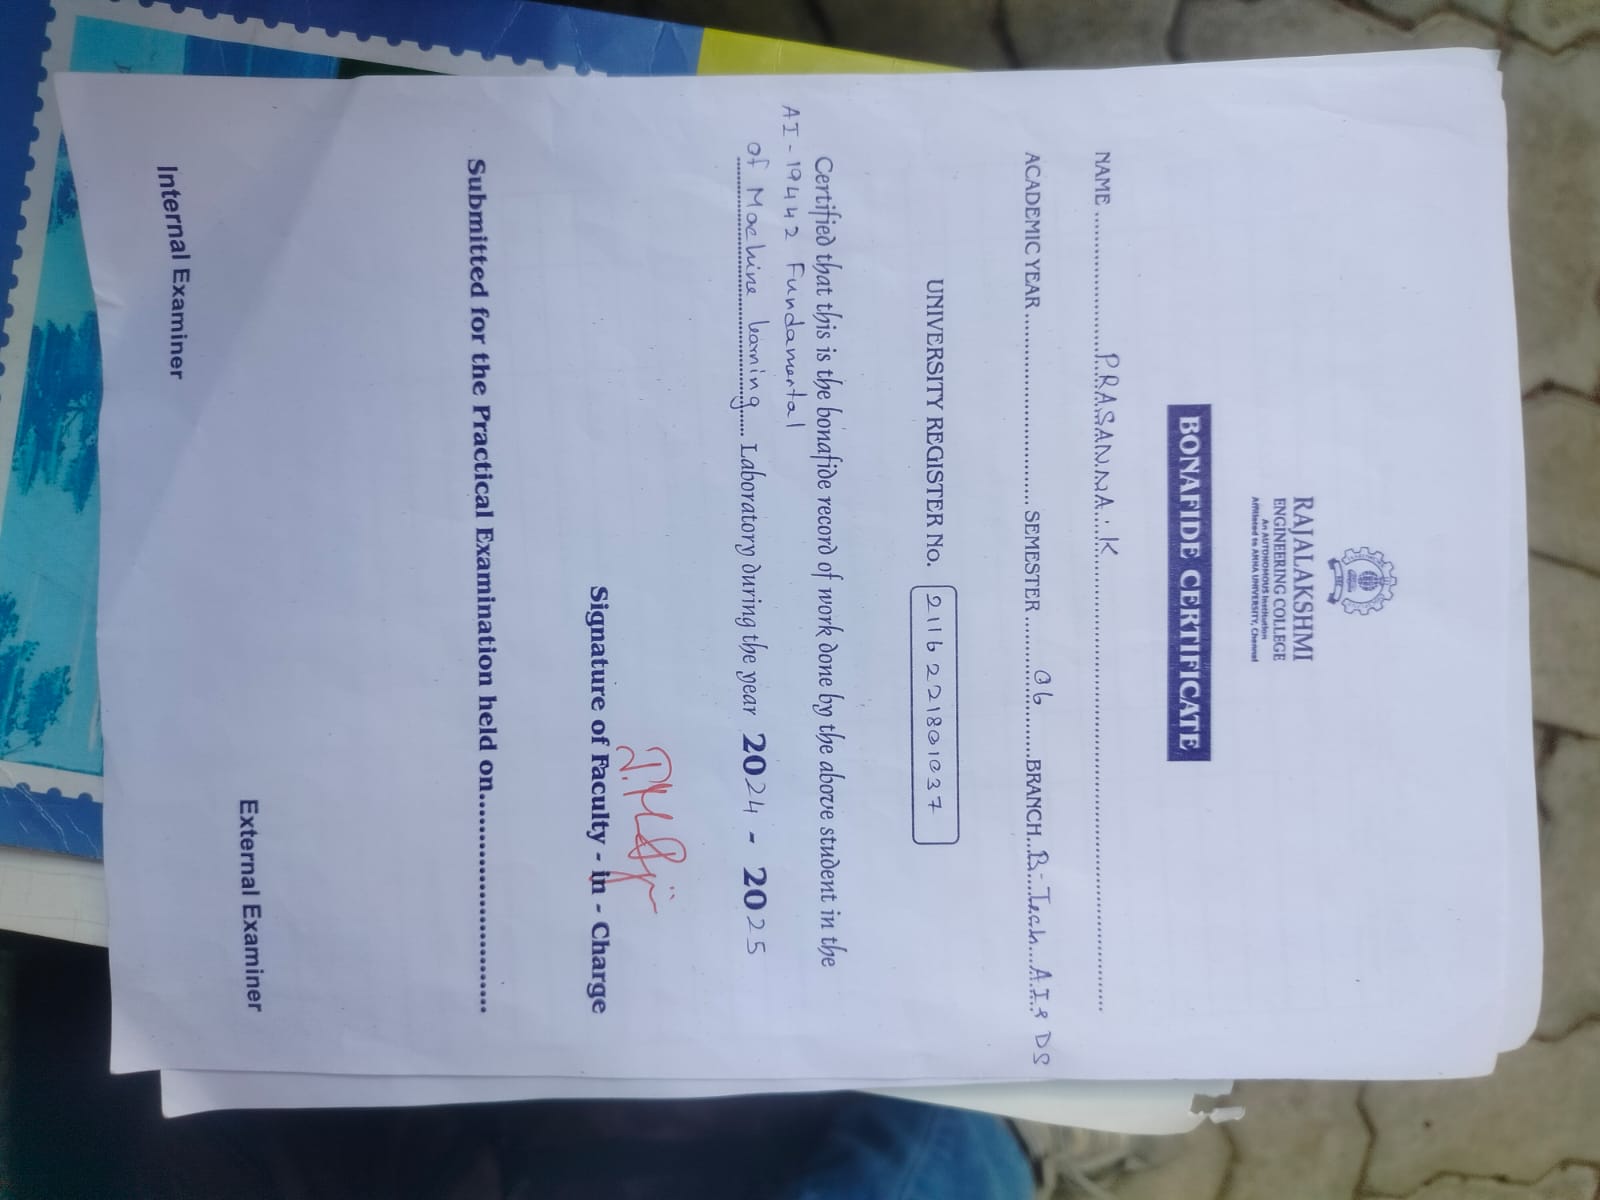 RAJALAKSHMI
ENGINEERING COLLEGE
An AUTONOMOUS Institution
Affiliated to ANNA UNIVERSITY, Chennai
BONAFIDE CERTIFICATE
NAME ..................... PRASANNA . K ...........................
ACADEMIC YEAR ........................... SEMESTER .......... 06 .......... BRANCH.. B.Tech AI & DS
UNIVERSITY REGISTER No. 2116221801037
Certified that this is the bonafide record of work done by the above student in the
AI-19442 Fundamental
of Machine learning ..... Laboratory during the year 2024 - 2025
Signature of Faculty - in - Charge
Submitted for the Practical Examination held on...........................
Internal Examiner External Examiner